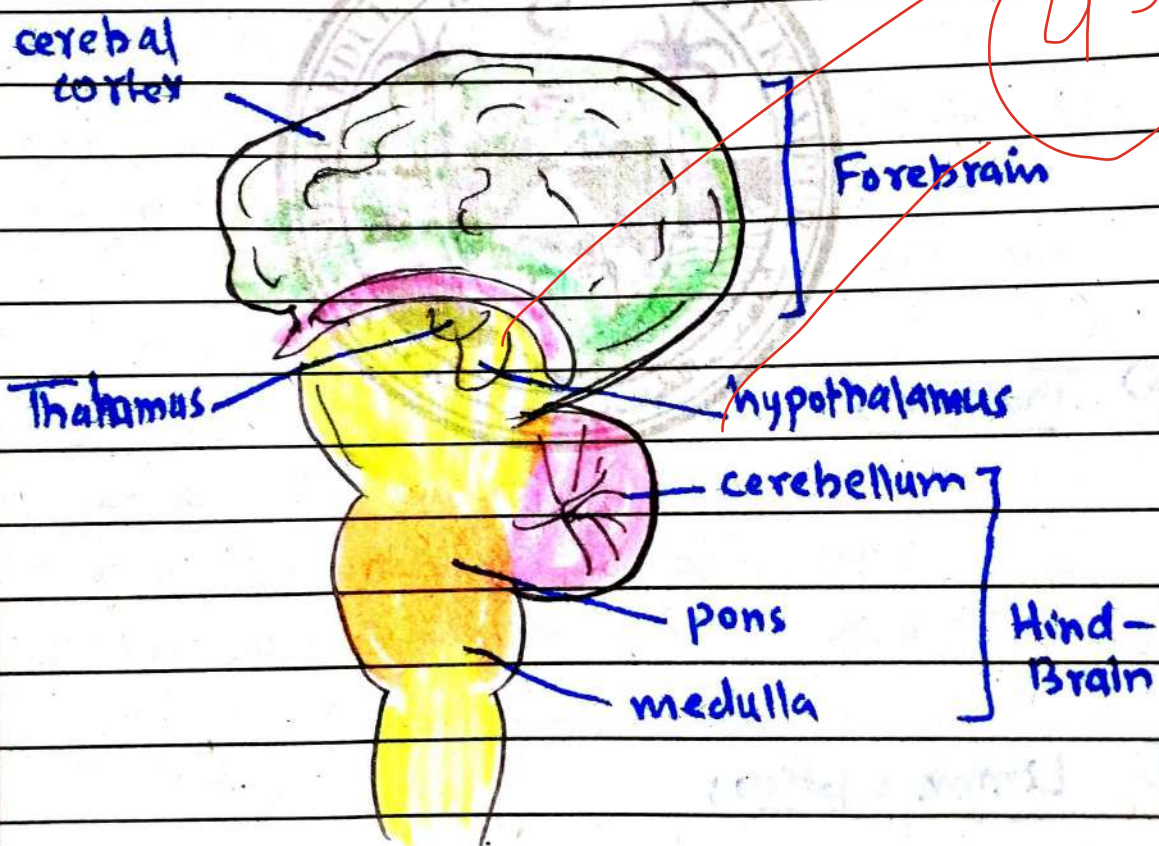 cerebal
cortex
Forebrain
Thalamus
hypothalamus
cerebellum
pons
Hind-
Brain
medulla